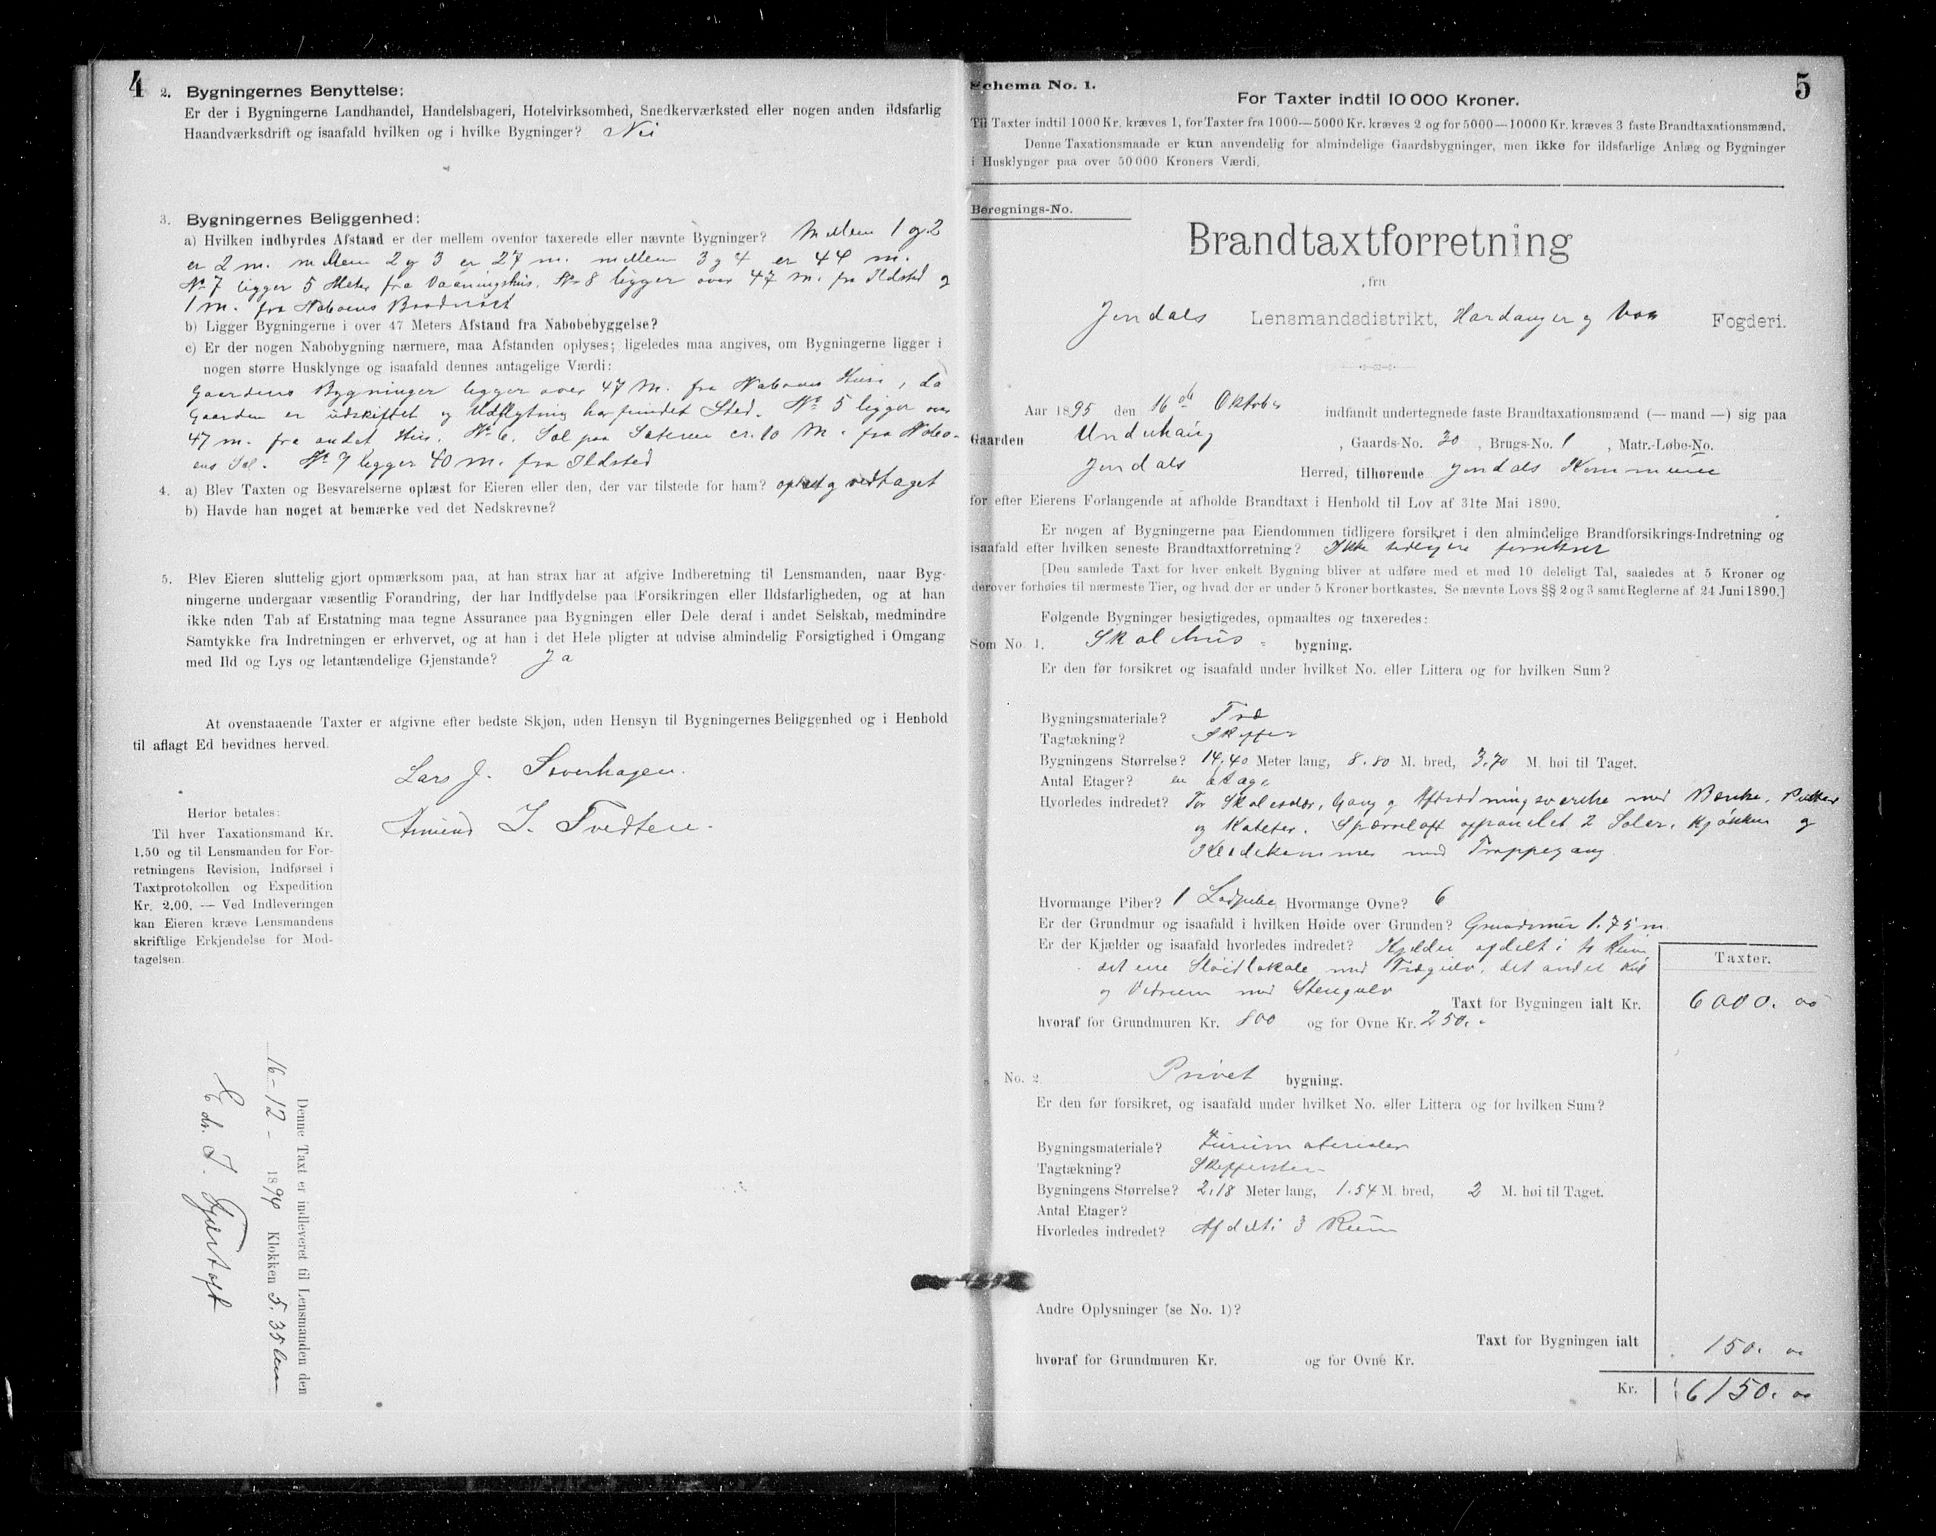 4
2. Bygningernes Benyttelse:
Er der i Bygningerne Landhandel, Handelsbageri, Hotelvirksomhed, Snedkerværksted eller nogen anden ildsfarlig
Haandværksdrift og isaafald hvilken og i hvilke Bygninger? Nei
3. Bygningernes Beliggenhed:
a) Hvilken indbyrdes Afstand er der mellem ovenfor taxerede eller nævnte Bygninger? Mellem 1 og 2
er 2 m. mellem 2 og 3 er 27 m. mellem 3 og 4 er 44 m.
No 7 ligger 5 Meter fra Vaaningshus. No 8 ligger over 47 m. fra Ildsted og
1 m. fra Naboens
b) Ligger Bygningerne i over 47 Meters Afstand fra Nabobebyggelse?
c) Er der nogen Nabobygning nærmere, maa Afstanden oplyses; ligeledes maa angives, om Bygningerne ligger i
nogen større Husklynge og isaafald dennes antagelige Værdi:
Gaardens Bygninger ligger over 47 M. fra Naboens Huse, da
Gaarden er udskiftet og Udflytning har fundet Sted. No 5 ligger over
47 m. fra andet Hus. No 6. Sel paa Sæteren cr. 10 M. fra Nabo-
ens Sel. No 9 ligger 40 m. fra Ildsted
4. a) Blev Taxten og Besvarelserne oplæst for Eieren eller den, der var tilstede for ham? oplæst og vedtaget
b) Havde han noget at bemærke ved det Nedskrevne?
5. Blev Eieren sluttelig gjort opmærksom paa, at han strax har at afgive Indberetning til Lensmanden, naar Byg-
ningerne undergaar væsentlig Forandring, der har Indflydelse paa Forsikringen eller Ildsfarligheden, og at han
ikke uden Tab af Erstatning maa tegne Assurance paa Bygningen eller Dele deraf i andet Selskab, medmindre
Samtykke fra Indretningen er erhvervet, og at han i det Hele pligter at udvise almindelig Forsigtighed i Omgang
med Ild og Lys og letantændelige Gjenstande? Ja
At ovenstaaende Taxter er afgivne efter bedste Skjøn, uden Hensyn til Bygningernes Beliggenhed og i Henhold
til aflagt Ed bevidnes herved.
Lars J. Soverhagen.
Amund I. Tvedten.
Herfor betales:
Til hver Taxationsmand Kr.
1.50 og til Lensmanden for For-
retningens Revision, Indførsel i
Taxtprotokollen og Expedition
Kr. 2.00. — Ved Indleveringen
kan Eieren kræve Lensmandens
skriftlige Erkjendelse for Mod-
tagelsen.
Denne Taxt er indleveret til Lensmanden den
16-12- 1894 Klokken 5.35
Edv. I.
5
Schema No. 1.
For Taxter indtil 10 000 Kroner.
Til Taxter indtil 1000 Kr. kræves 1, for Taxter fra 1000—5000 Kr. kræves 2 og for 5000—10000 Kr. kræves 3 faste Brandtaxationsmænd.
Denne Taxationsmaade er kun anvendelig for almindelige Gaardsbygninger, men ikke for ildsfarlige Anlæg og Bygninger
i Husklynger paa over 50 000 Kroners Værdi.
Beregnings-No.
Brandtaxtforretning
fra
Jondals Lensmandsdistrikt, Hardanger og Voss Fogderi.
Aar 1895 den 16de Oktober indfandt undertegnede faste Brandtaxationsmænd (— mand —) sig paa
Gaarden Underhaug, Gaards-No. 30, Brugs-No. 1, Matr.-Løbe-No.
Jondals Herred, tilhørende Jondals Kommune
for efter Eierens Forlangende at afholde Brandtaxt i Henhold til Lov af 31te Mai 1890.
Er nogen af Bygningerne paa Eiendommen tidligere forsikret i den almindelige Brandforsikrings-Indretning og
isaafald efter hvilken seneste Brandtaxtforretning? Ikke tidligere forsikret
[Den samlede Taxt for hver enkelt Bygning bliver at udføre med et med 10 deleligt Tal, saaledes at 5 Kroner og
derover forhøies til nærmeste Tier, og hvad der er under 5 Kroner bortkastes. Se nævnte Lovs §§ 2 og 3 samt Reglerne af 24 Juni 1890.]
Følgende Bygninger besigtigedes, opmaaltes og taxeredes:
Som No. 1. Skolehus bygning.
Er den før forsikret og isaafald under hvilket No. eller Littera og for hvilken Sum?
Bygningsmateriale? Træ
Tagtækning? Skiffer
Bygningens Størrelse? 14,40 Meter lang, 8.80 M. bred, 3,70 M. høi til Taget.
Antal Etager? en etage
Hvorledes indredet? To Skolesaler, Gang og Afklædningsværelse med Bænke, Pulter
og Kateter. Sperreloft oppanelet 2 Soler, Kjøkken og
Klædekammer med Trappegang
Hvormange Piber? 1 Lodpibe Hvormange Ovne? 6
Er der Grundmur og isaafald i hvilken Høide over Grunden? Grundmur 1.75 m.
Er der Kjælder og isaafald hvorledes indredet? Kjelder afdelt i to Rum
det ene Sløidlokale med Trægulv, det andet Kul
og Vedrum med Stengulv
Taxter.
Taxt for Bygningen ialt Kr. 6000. 00
hvoraf for Grundmuren Kr. 800 og for Ovne Kr. 250.-
" No. 2 Privet bygning.
Er den før forsikret, og isaafald under hvilket No. eller Littera og for hvilken Sum?
Bygningsmateriale?
Tagtækning?
Bygningens Størrelse? 2,18 Meter lang, 1.54 M. bred, 2 M. høi til Taget.
Antal Etager?
Hvorledes indredet? Afdelt i 3 Rum
Andre Oplysninger (se No. 1)?
Taxt for Bygningen ialt 150. 00
hvoraf for Grundmuren Kr. og for Ovne Kr.
Kr. 6150. 00